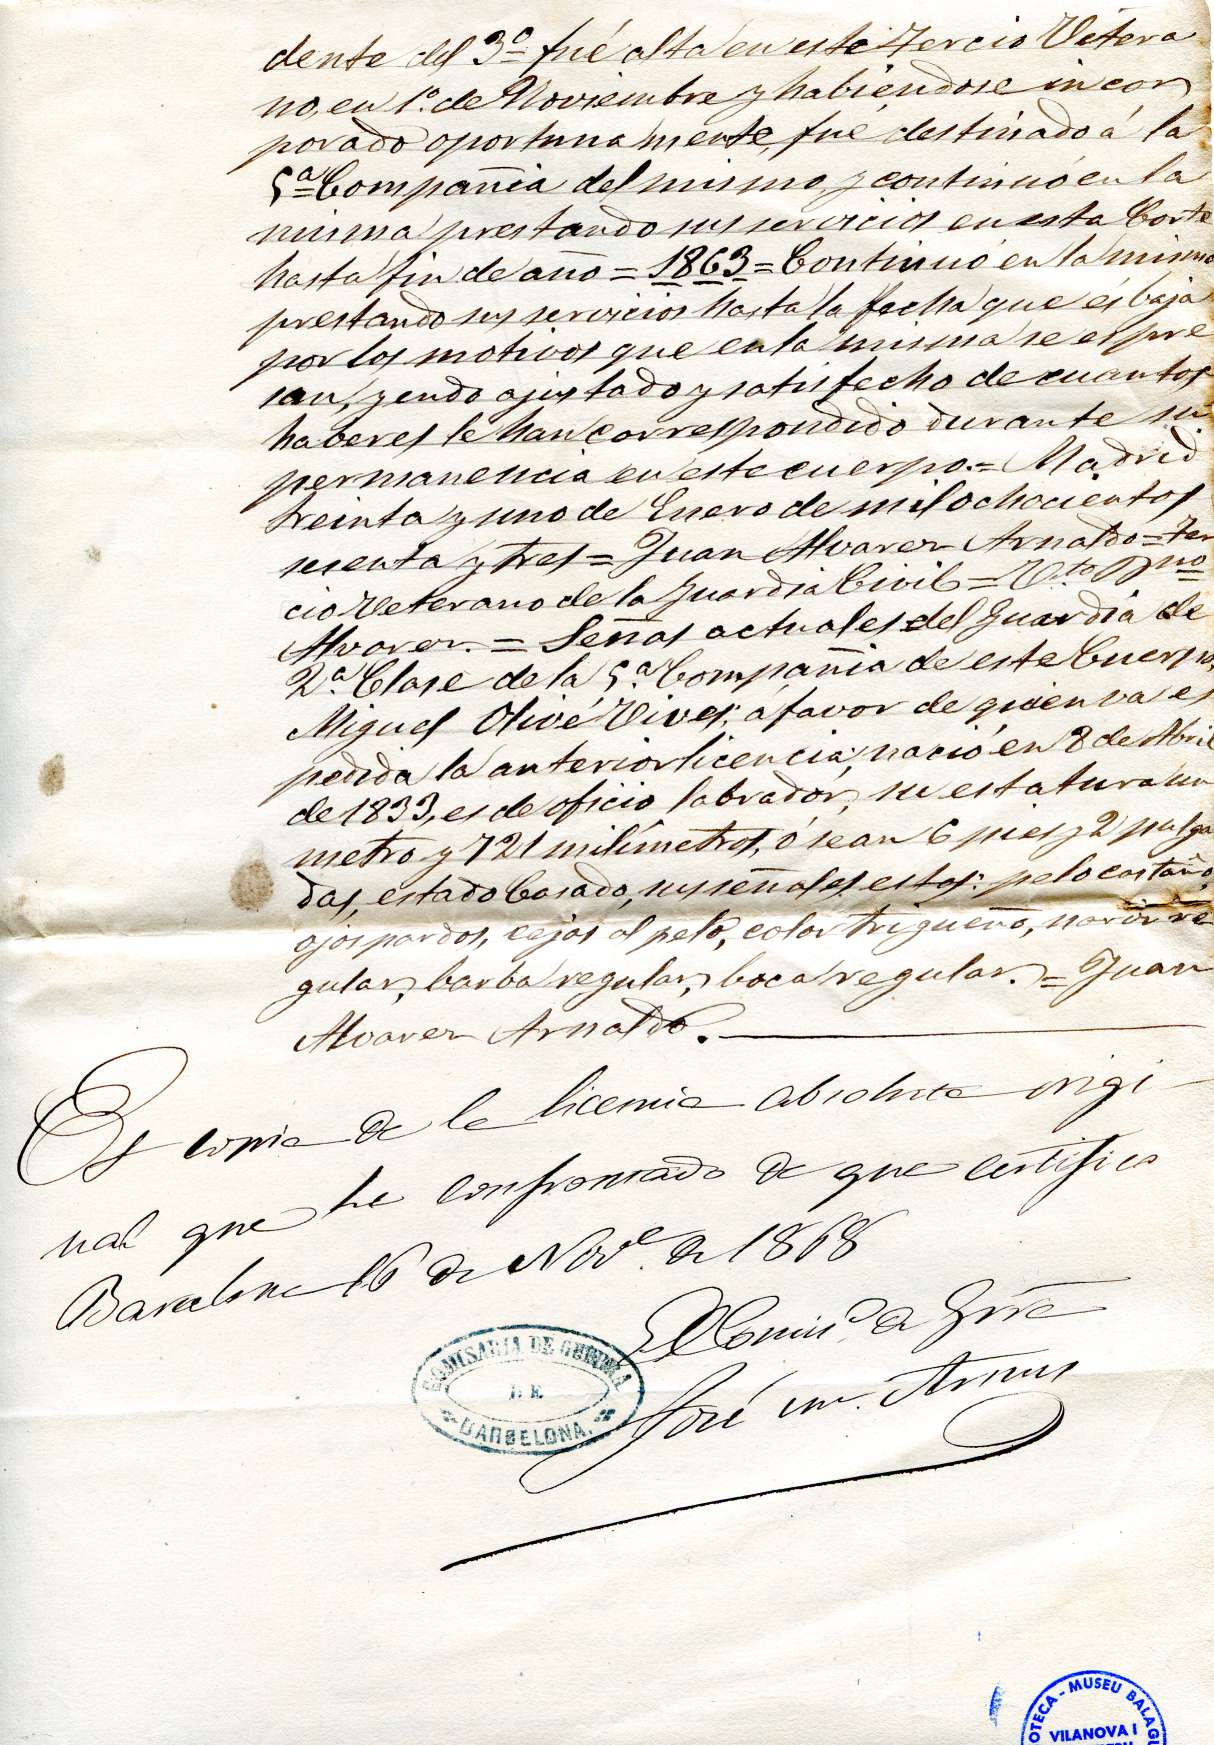 dente del 3º fué alta en este Tercio Vetera
no, en 1º de Noviembre y habiéndose incor
porado oportunamente, fué destinado á la
5ª Compañia del mismo, y continuó en la
misma prestando sus servicios en esta Corte
hasta fin de año = 1863 = Continuó en la misma
prestando sus servicios hasta la fecha que és baja
por los motivos que en la misma se espre
san, yendo ajustado y satisfecho de cuantos
haberes le han correspondido durante su
permanencia en este cuerpo. = Madrid
treinta y uno de Enero de mil ochocientos
sesenta y tres = Juan Alvarez Arnaldo = Ter
cio Veterano de la Guardia Civil = Vto Bno
Alvarez. = Señas actuales del Guardia de
2ª Clase de la 5ª Compañia de este Cuerpo,
Miguel Olivé Vives, á favor de quien va es
pedida la anterior licencia; nació en 8 de Abril
de 1833, es de oficio labrador, su estatura un
metro y 721 milímetros, ó sean 6 pies y 2 pulga
das, estado Casado, sus señales estas: pelo castaño,
ojos pardos, cejas al pelo, color trigueño, nariz re
gular, barba regular, boca regular. = Juan
Alvarez Arnaldo.
Es copia de la licencia absoluta origi
nal que he confrontado de que certifico
Barcelona 16 de Nove. de 1868
El Comiso. de Grra
José Armus
COMISARIA DE GUERRA
DE
BARCELONA.
OTECA - MUSEU BALAGU
VILANOVA I